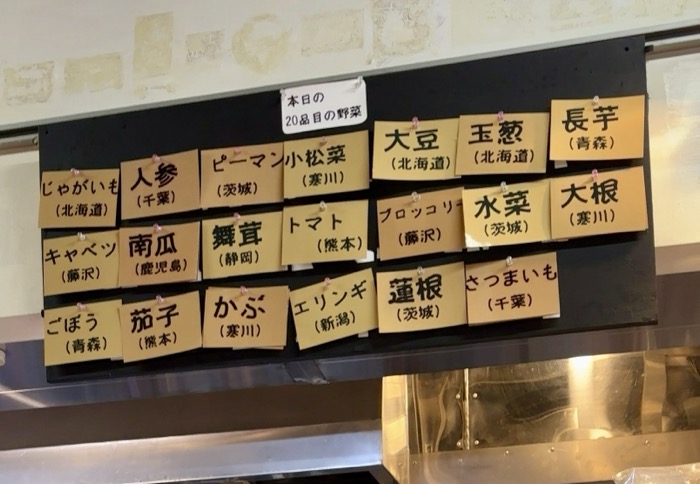 本日の
20品目の野菜
じゃがいも
(北海道)
人参
(千葉)
ピーマン
(茨城)
小松菜
(寒川)
大豆
(北海道)
玉葱
(北海道)
長芋
(青森)
キャベツ
(藤沢)
南瓜
(鹿児島)
舞茸
(静岡)
トマト
(熊本)
ブロッコリー
(藤沢)
水菜
(茨城)
大根
(寒川)
ごぼう
(青森)
茄子
(熊本)
かぶ
(寒川)
エリンギ
(新潟)
蓮根
(茨城)
さつまいも
(千葉)